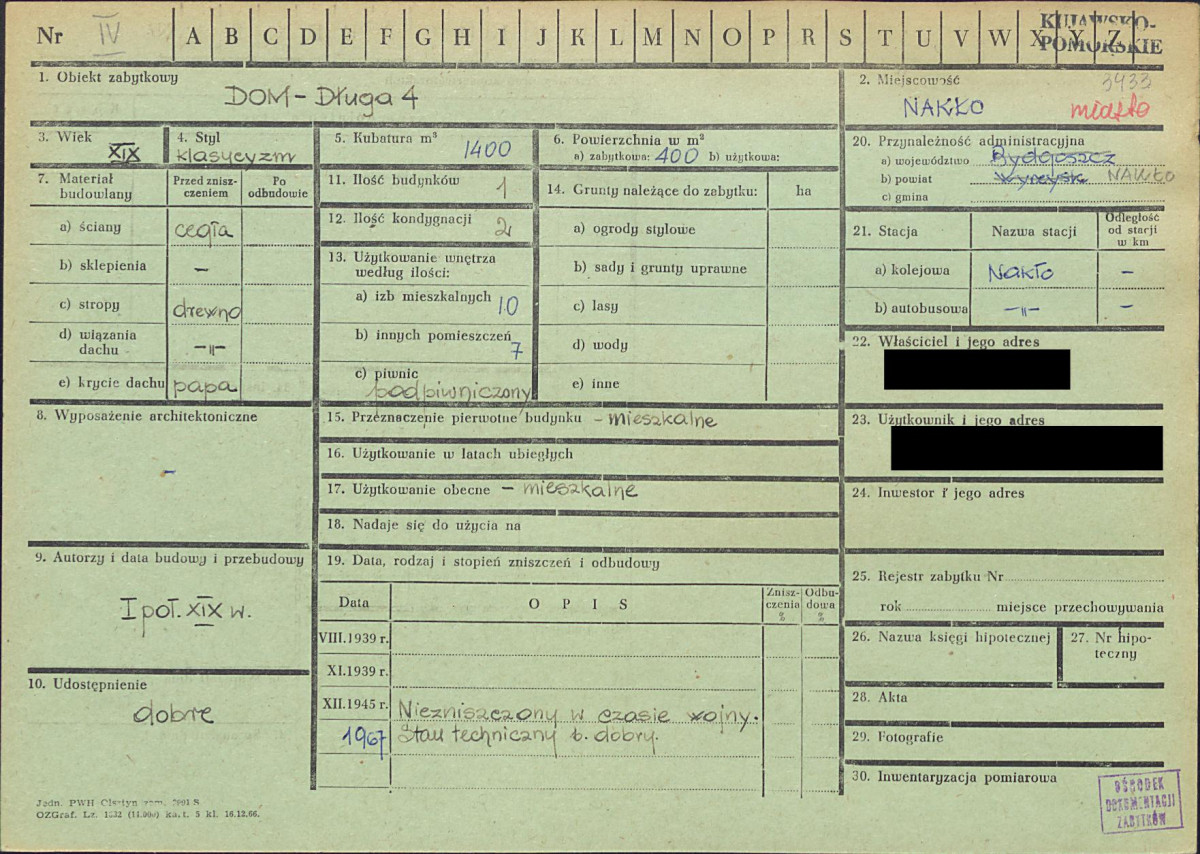 Nr IV A B C D E F G H I J K L M N O P R S T U V W X Y Z KUJAWSKO-
POMORSKIE
1. Obiekt zabytkowy
DOM - Długa 4
2. Miejscowość 3433
NAKŁO miasto
3. Wiek
XIX
4. Styl
klasycyzm
5. Kubatura m³ 1400
6. Powierzchnia w m²
a) zabytkowa: 400 b) użytkowa:
7. Materiał
budowlany
Przed znisz-
czeniem
Po
odbudowie
a) ściany cegła
b) sklepienia -
c) stropy drewno
d) wiązania
dachu -"-
e) krycie dachu papa
8. Wyposażenie architektoniczne
-
9. Autorzy i data budowy i przebudowy
I poł. XIX w.
10. Udostępnienie
dobre
11. Ilość budynków 1
12. Ilość kondygnacji 2
13. Użytkowanie wnętrza
według ilości:
a) izb mieszkalnych 10
b) innych pomieszczeń 7
c) piwnic
podpiwniczony
14. Grunty należące do zabytku: ha
a) ogrody stylowe
b) sady i grunty uprawne
c) lasy
d) wody
e) inne
15. Przeznaczenie pierwotne budynku - mieszkalne
16. Użytkowanie w latach ubiegłych
17. Użytkowanie obecne - mieszkalne
18. Nadaje się do użycia na
19. Data, rodzaj i stopień zniszczeń i odbudowy
Data OPIS Znisz-
czenia
%
Odbu-
dowa
%
VIII.1939 r.
XI.1939 r.
XII.1945 r. Niezniszczony w czasie wojny.
1967 Stan techniczny b. dobry.
20. Przynależność administracyjna
a) województwo Bydgoszcz
b) powiat Wyrzysk NAKŁO
c) gmina
21. Stacja Nazwa stacji Odległość
od stacji
w km
a) kolejowa Nakło -
b) autobusowa -"- -
22. Właściciel i jego adres
23. Użytkownik i jego adres
24. Inwestor i jego adres
25. Rejestr zabytku Nr
rok miejsce przechowywania
26. Nazwa księgi hipotecznej
27. Nr hipo-
teczny
28. Akta
29. Fotografie
30. Inwentaryzacja pomiarowa
OŚRODEK
DOKUMENTACJI
ZABYTKÓW
Jedn. PWH Olsztyn zam. S
OZGraf. Lz. 1332 (11.000) ka. t. 5 kl. 16.12.66.